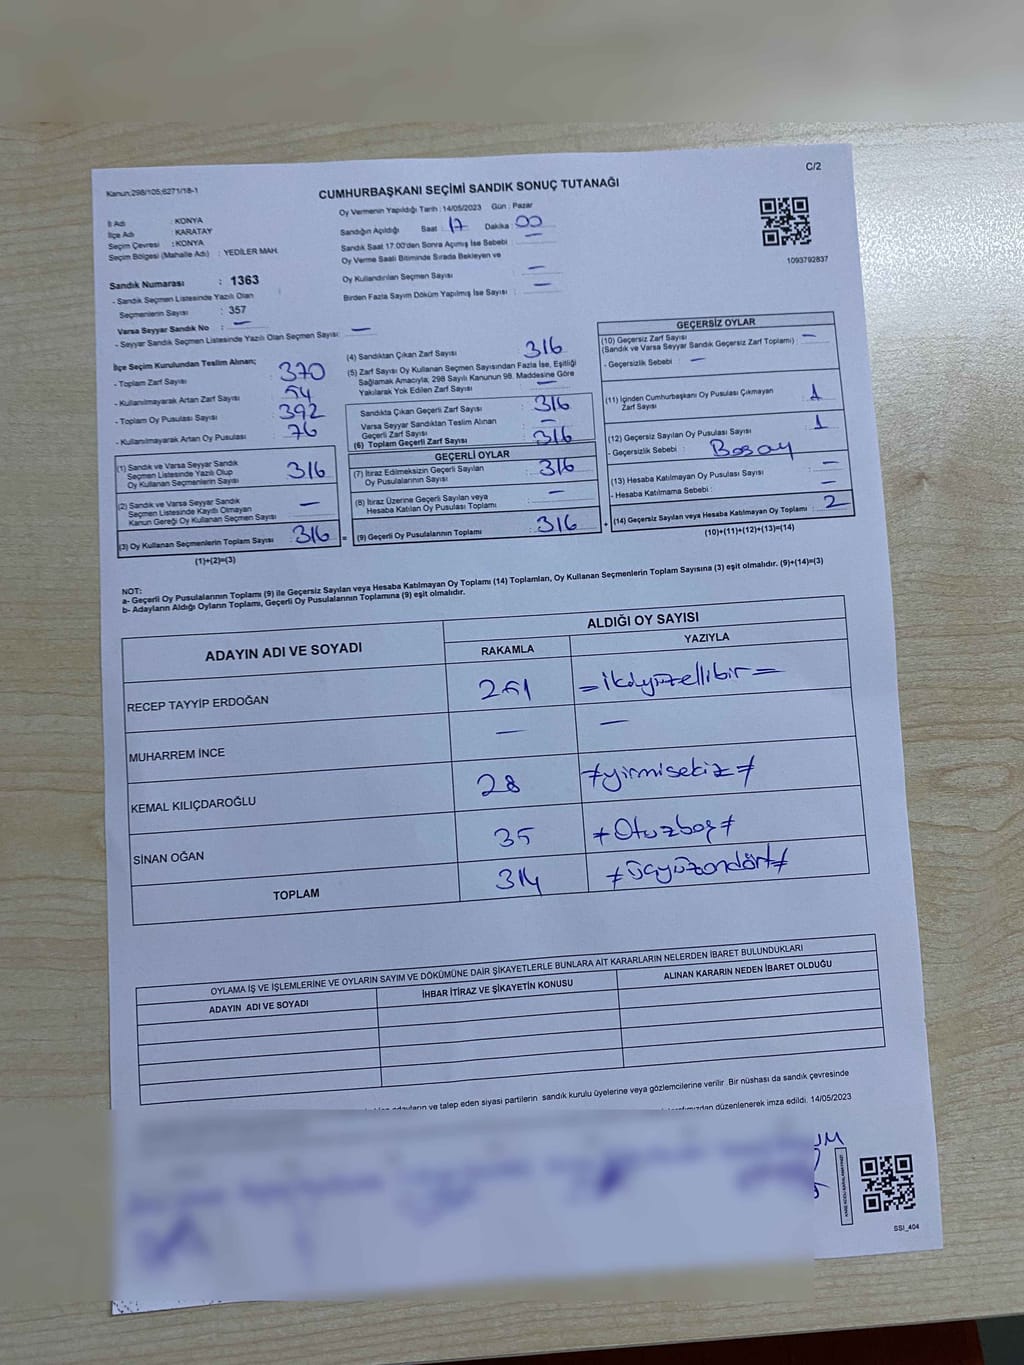 Kanun:298/105;6271/18-1
C/2
CUMHURBAŞKANI SEÇİMİ SANDIK SONUÇ TUTANAĞI
İl Adı : KONYA
İlçe Adı : KARATAY
Seçim Çevresi : KONYA
Seçim Bölgesi (Mahalle Adı) : YEDİLER MAH.
Sandık Numarası : 1363
- Sandık Seçmen Listesinde Yazılı Olan
Seçmenlerin Sayısı : 357
Varsa Seyyar Sandık No : —
- Seyyar Sandık Seçmen Listesinde Yazılı Olan Seçmen Sayısı: —
Oy Vermenin Yapıldığı Tarih : 14/05/2023 Gün : Pazar
Sandığın Açıldığı Saat 17 Dakika : 00
Sandık Saat 17:00'den Sonra Açımış İse Sebebi : —
Oy Verme Saati Bitiminde Sırada Bekleyen ve
Oy Kullandırılan Seçmen Sayısı : —
Birden Fazla Sayım Döküm Yapılmış İse Sayısı : —
1093792837
İlçe Seçim Kurulundan Teslim Alınan;
- Toplam Zarf Sayısı : 370
- Kullanılmayarak Artan Zarf Sayısı : 54
- Toplam Oy Pusulası Sayısı : 392
- Kullanılmayarak Artan Oy Pusulası : 76
(1) Sandık ve Varsa Seyyar Sandık
Seçmen Listesinde Yazılı Olup
Oy Kullanan Seçmenlerin Sayısı : 316
(2) Sandık ve Varsa Seyyar Sandık
Seçmen Listesinde Kayıtlı Olmayan
Kanun Gereği Oy Kullanan Seçmen Sayısı : —
(3) Oy Kullanan Seçmenlerin Toplam Sayısı : 316
(1)+(2)=(3)
(4) Sandıktan Çıkan Zarf Sayısı : 316
(5) Zarf Sayısı Oy Kullanan Seçmen Sayısından Fazla İse, Eşitliği
Sağlamak Amacıyla; 298 Sayılı Kanunun 98. Maddesine Göre
Yakılarak Yok Edilen Zarf Sayısı : —
Sandıkta Çıkan Geçerli Zarf Sayısı : 316
Varsa Seyyar Sandıktan Teslim Alınan
Geçerli Zarf Sayısı : —
(6) Toplam Geçerli Zarf Sayısı : 316
GEÇERLİ OYLAR
(7) İtiraz Edilmeksizin Geçerli Sayılan
Oy Pusulalarının Sayısı : 316
(8) İtiraz Üzerine Geçerli Sayılan veya
Hesaba Katılan Oy Pusulası Toplamı : —
= (9) Geçerli Oy Pusulalarının Toplamı : 316 +
GEÇERSİZ OYLAR
(10) Geçersiz Zarf Sayısı
(Sandık ve Varsa Seyyar Sandık Geçersiz Zarf Toplamı) : —
- Geçersizlik Sebebi : —
(11) İçinden Cumhurbaşkanı Oy Pusulası Çıkmayan
Zarf Sayısı : 1
(12) Geçersiz Sayılan Oy Pusulası Sayısı : 1
- Geçersizlik Sebebi :
(13) Hesaba Katılmayan Oy Pusulası Sayısı : —
- Hesaba Katılmama Sebebi : —
(14) Geçersiz Sayılan veya Hesaba Katılmayan Oy Toplamı : 2
(10)+(11)+(12)+(13)=(14)
NOT:
a- Geçerli Oy Pusulalarının Toplamı (9) ile Geçersiz Sayılan veya Hesaba Katılmayan Oy Toplamı (14) Toplamları, Oy Kullanan Seçmenlerin Toplam Sayısına (3) eşit olmalıdır. (9)+(14)=(3)
b- Adayların Aldığı Oyların Toplamı, Geçerli Oy Pusulalarının Toplamına (9) eşit olmalıdır.
ADAYIN ADI VE SOYADI
ALDIĞI OY SAYISI
RAKAMLA YAZIYLA
RECEP TAYYİP ERDOĞAN 251 = ikiyüzellibir =
MUHARREM İNCE — —
KEMAL KILIÇDAROĞLU 28 ≠ yirmisekiz ≠
SİNAN OĞAN 35 ≠ Otuzbeş ≠
TOPLAM 314 ≠ üçyüzondört ≠
OYLAMA İŞ VE İŞLEMLERİNE VE OYLARIN SAYIM VE DÖKÜMÜNE DAİR ŞİKAYETLERLE BUNLARA AİT KARARLARIN NELERDEN İBARET BULUNDUKLARI
ADAYIN ADI VE SOYADI İHBAR İTİRAZ VE ŞİKAYETİN KONUSU ALINAN KARARIN NEDEN İBARET OLDUĞU
adayların ve talep eden siyasi partilerin sandık kurulu üyelerine veya gözlemcilerine verilir. Bir nüshası da sandık çevresinde
düzenlenerek imza edildi. 14/05/2023
SSI_404